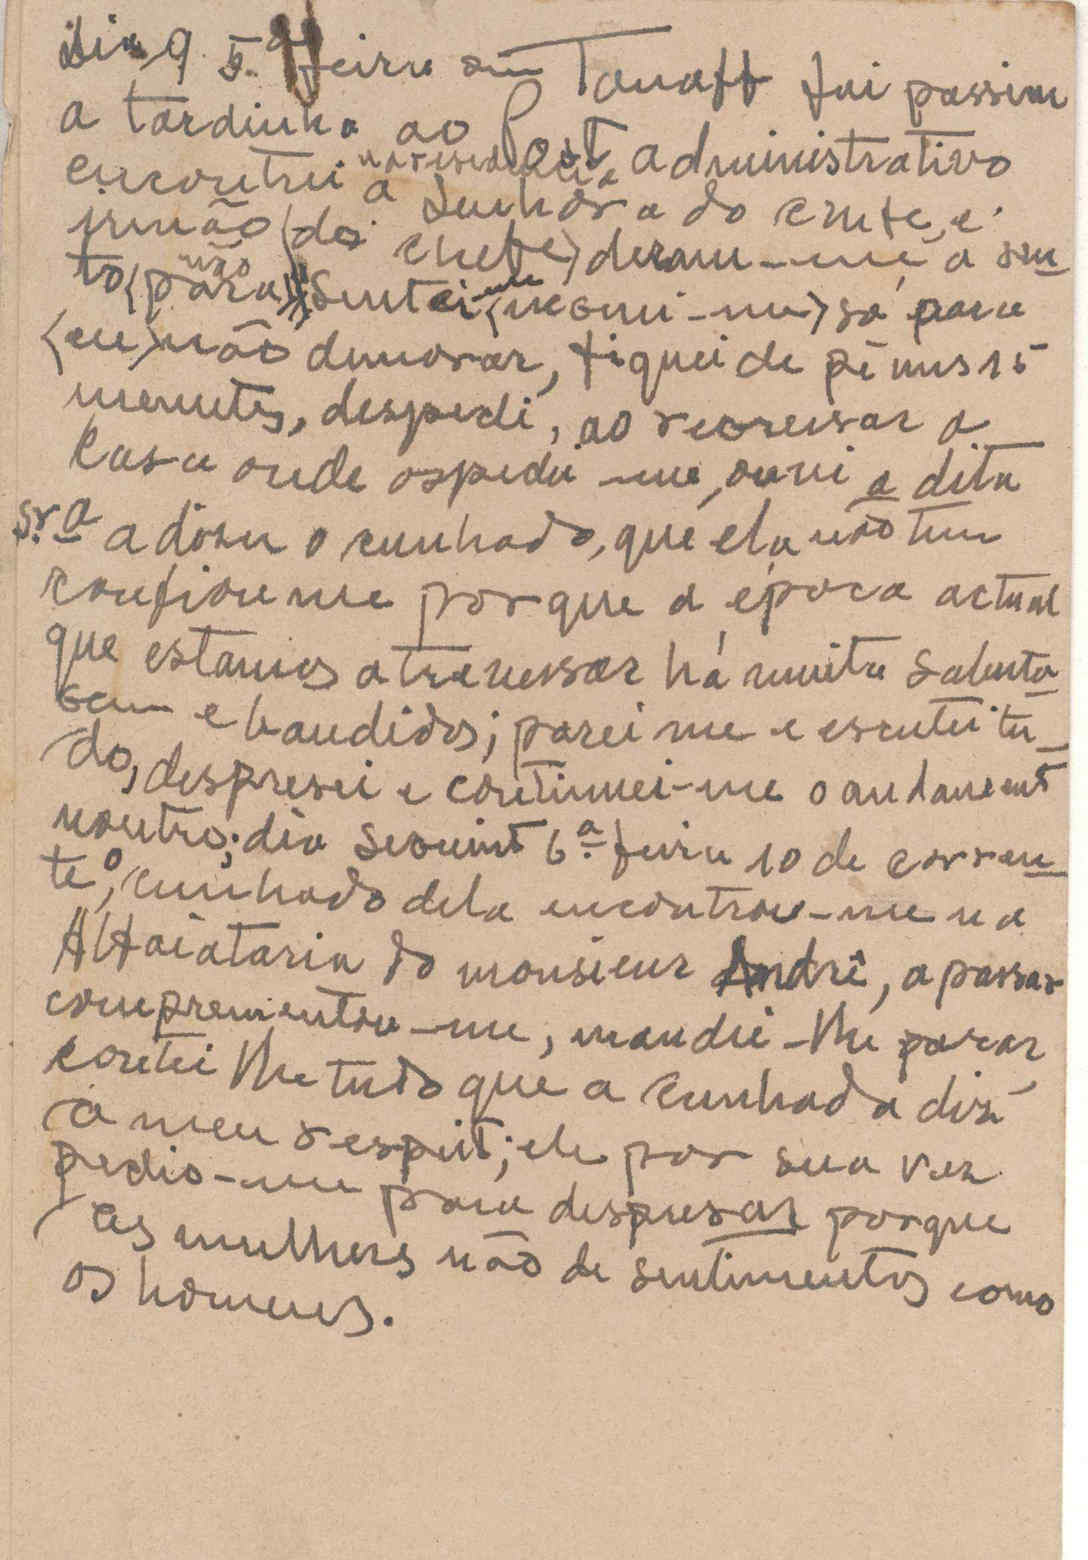 dia 9 5.ª feira em Tanaff fui passiar
a tardinha ao Post administrativo
encontrei na residencia a Senhora do chefe, e
irmão (do chefe) deram-me a sen
to (para) não Sentei-me (neguei-me) só para
(eu) não dimorar, fiquei de pé uns 15
menutos, despedi, ao regressar a
Casa onde ospedei-me, ouvi a dita
Sr.ª a dizer o cunhado, que ela não tem
confiança porque a época actual
que estamos atravessar há muita sabuta
gem e bandidos; parei me e escutei tu
do, despresei e continuei-me o andament
noutro; dia seguint 6.ª feira 10 de corren
te, o cunhado dela encontrou-me na
Alfaiataria do monsieur André, a passar
comprementou-me, mandei-lhe parar
contei lhe tudo que a Cunhada diz
a meu respeit; ele por sua vez
pedio-me para despresar porque
as mulheres não de sentimentos como
os homens.